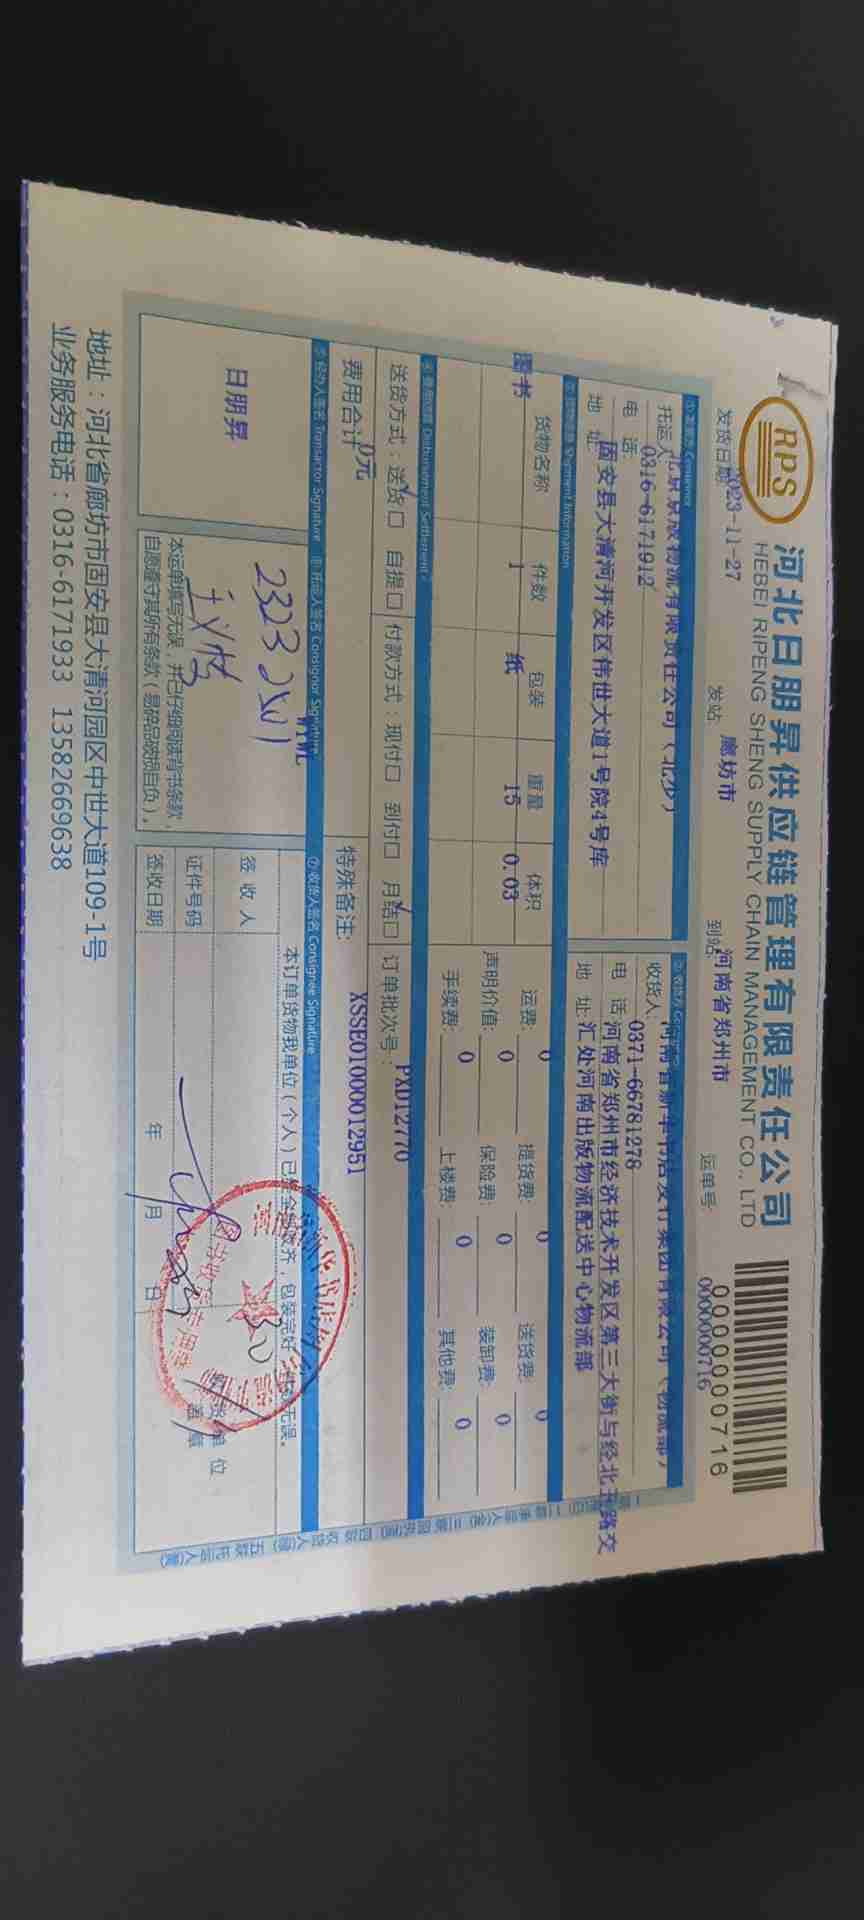 RPS
河北日朋昇供应链管理有限责任公司
HEBEI RIPENG SHENG SUPPLY CHAIN MANAGEMENT CO., LTD
0000000716
发货日期 2023-11-27 发站 廊坊市 到站 河南省郑州市 运单号: 0000000716
托运人 北京京版物流有限责任公司(北少)
电 话: 0316-6171912
地 址: 固安县大清河开发区伟世大道1号院4号库
收货人: 河南省新华书店发行集团有限公司(物流部)
电 话: 0371-66781278
地 址: 河南省郑州市经济技术开发区第三大街与经北五路交
汇处河南出版物流配送中心物流部
Shipment Information
货物名称 件数 包装 重量 体积
图书 1 纸 15 0.03
运费: 0 提货费: 0 送货费: 0
声明价值: 0 保险费: 0 装卸费: 0
手续费: 0 上楼费: 0 其他费: 0
Disbursement Settlement
送货方式:送货☑ 自提□ 付款方式:现付□ 到付□ 月结☑ 订单批次号: PXD12770
费用合计 0元 特殊备注: XSSE01000012951
经办人签名 Transactor Signature 托运人签名 Consignor Signature 收货人签名 Consignee Signature
WLWL
日朋昇
本运单填写无误,并已仔细阅读背书条款,
自愿遵守其所有条款(易碎品破损自负)。
本订单货物我单位(个人)已
包装完好
无误。
签 收 人
证件号码
签收日期 年 月 日
单 位
盖 章
地址:河北省廊坊市固安县大清河园区中世大道109-1号
业务服务电话:0316-6171933 13582669638